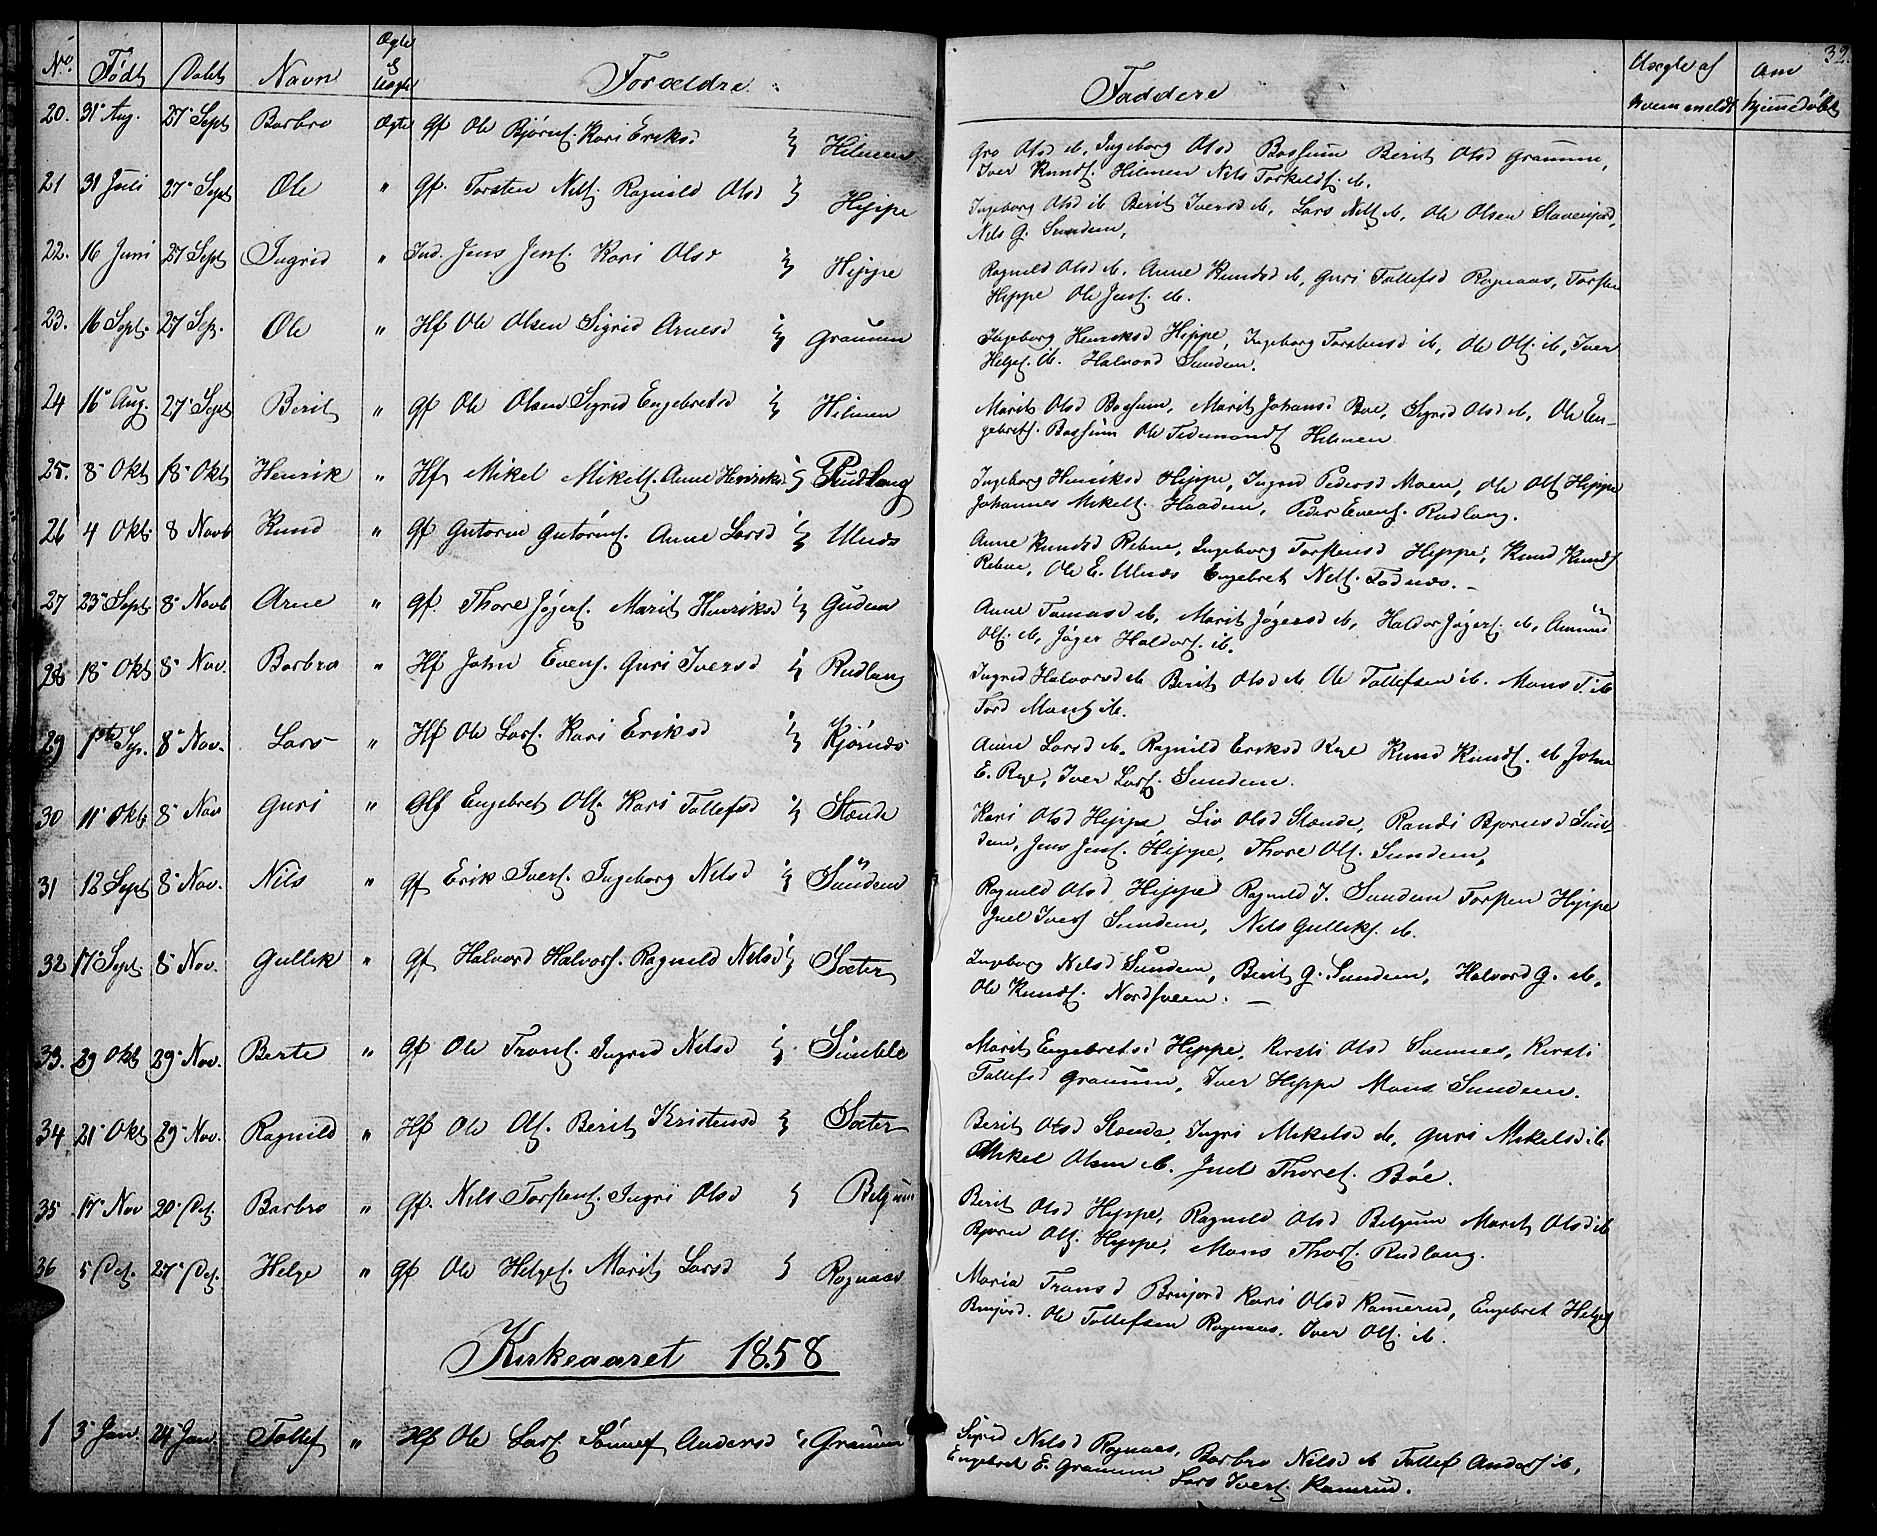 No. Født Døbt Navn Ægte & Uægte Forældre Faddere Uægte af hvem meldt Om hjemmedøbt 32.
20. 31 Aug. 27 Sept Barbro Ægte Gf Ole Bjørns. Kari Eriksd i Hilmen
Gro Olsd ib, Ingeborg Olsd Bossum Berit Olsd Graumm,
Iver Knuds. Hilmen Nils Torkelds. ib.
21 31 Juli 27 Sept Ole " Gf. Torsten Nils. Ragnild Olsd i Hippe
Ingeborg Olsd ib Berit Iversd ib, Lars Nils. ib, Ole Olsen
Nils G. Sundem,
22. 16 Juni 27 Sept Ingrid " Ind. Jens Jens. Kari Olsd i Hippe
Ragnild Olsd ib. Anne Knudsd ib, Guri Tollefsd Rognaas, Torsten
Hippe Ole Jens. ib.
23. 16 Sept. 27 Sep. Ole " Hf Ole Olsen Sigrid Arnesd i Graumm
Ingeborg Henriksd Hippe, Ingeborg Torstensd ib, Ole Ols. ib, Iver
Helges. ib. Halvord Sundem.
24 16 Aug. 27 Sept Berit " Gf Ole Olsen Sigrid Engebretsd i Hilmen
Marit Olsd Bossum, Marit Johansd Boe, Sigrid Olsd ib, Ole En-
gebrets. Bossum Ole Hilmen
25. 8 Okt 18 Okt Henrik " Hf Mikel Mikels. Anne Henriksd i Rudlang
Ingeborg Henriksd Hippe, Ingrid Pedersd Moen, Ole Ols. Hippe
Johannes Mikels. Haadem, Peder Evens. Rudlang.
26 4 Okt. 8 Novb Knud " Gf Gutorm Gutorms. Anne Larsd i Ulnæs
Anne Knudsd Rebne, Ingeborg Torstensd Hippe, Knud Knuds
Rebne, Ole E. Ulnæs Engebret Nils. Fodnæs. -
27 23 Sept 8 Novb Arne " Gf. Thore Jøgers. Marit Henriksd i Gudem
Anne Tomasd ib, Marit Jøgersd ib, Haldor Jøgers. ib,
Ols. ib, Jøger Haldors. ib.
28 18 Okt 8 Nov. Barbro " Hf John Evens. Guri Iversd i Rudlang
Ingrid Halvorsd ib Berit Olsd ib Ole Tollefsen ib. Mons T. ib
Tord Mons. ib.
29 1ste Sep. 8 Nov. Lars " Hf Ole Lars. Kari Eriksd i Kjørnæs
Anne Larsd ib. Ragnild Eriksd Rye Knud Knuds. ib, John
E. Rye, Iver Lars. Sundem.
30 11 Okt. 8 Nov Guri " Gf Engebret Ols. Kari Tollefsd i Stende
Kari Olsd Hippe, Liv Olsd Stende, Randi Bjørnsd Sun-
dem, Jens Jens. Hippe, Thore Ols. Sundem,
31 12 Sept 8 Nov. Nils " Gf Erik Ivers. Ingeborg Nilsd i Sundem
Ragnild Olsd Hippe Ragnild I. Sundem Torsten Hippe
Juel Ivers Sundem, Nils Gulliks. ib.
32 17 Sept. 8 Nov. Gullik " Gf Halvord Halvors. Ragnild Nilsd i Sæter
Ingeborg Nilsd Sundem, Berit G. Sundem, Halvord G. ib,
Ole Knuds. Nordsveen. -
33. 29 Okt 29 Nov. Berte " Gf Ole Trons. Ingrid Nilsd i
Marit Engebretsd Hippe, Kirsti Olsd Kirsti
Tollefsd Graumm, Iver Hippe Mons Sundem.
34 21 Okt 29 Nov. Ragnild " Hf Ole Ols. Berit Kristensd i Sæter
Berit Olsd Stende, Ingri Mikelsd ib, Guri Mikelsd ib
Mikel Olsen ib. Juel Thores. Bøe.
35 17 Nov 20 Des. Barbro " Gf. Nils Torstens. Ingri Olsd i Belgum
Berit Olsd Hippe, Ragnild Olsd Belgum Marit Olsd ib
Bjørn Ols. Hippe, Mons Thors. Rudlang.
36 5 Des. 27 Des. Helge " Gf Ole Helges. Marit Larsd i Rognaas
Maria Transd Brujord Kari Olsd Kamerud, Engebret Helges
Brujord. Ole Tollefsen Rognaas. Iver Ols. ib.
Kirkeaaret 1858
1 3 Jan. 24 Jan. Tollef " Hf Ole Lars. Sønnef Andersd i Graumm
Sigrid Nilsd Rognaas, Barbro Nilsd ib Tollef Anders. ib,
Engebret E. Graumm Lars Ivers. Kamrud.